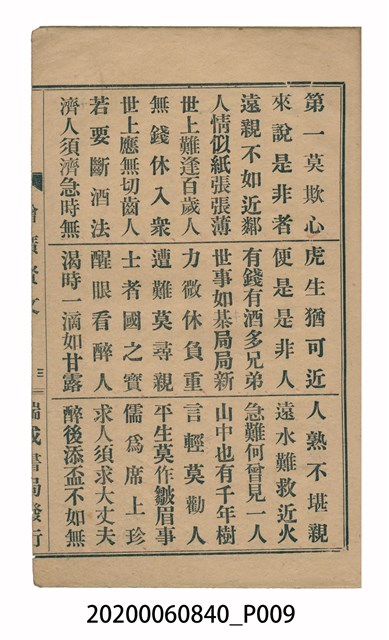 第一莫欺心 虎生猶可近 人熟不堪親
來說是非者 便是是非人 遠水難救近火
遠親不如近鄰 有錢有酒多兄弟 急難何曾見一人
人情似紙張張薄 世事如棊局局新 山中也有千年樹
世上難逢百歲人 力微休負重 言輕莫勸人
無錢休入衆 遭難莫尋親 平生莫作皺眉事
世上應無切齒人 士者國之寶 儒爲席上珍
若要斷酒法 醒眼看醉人 求人須求大丈夫
濟人須濟急時無 渴時一滴如甘露 醉後添盃不如無
增廣賢文 三 瑞成書局發行
20200060840_P009